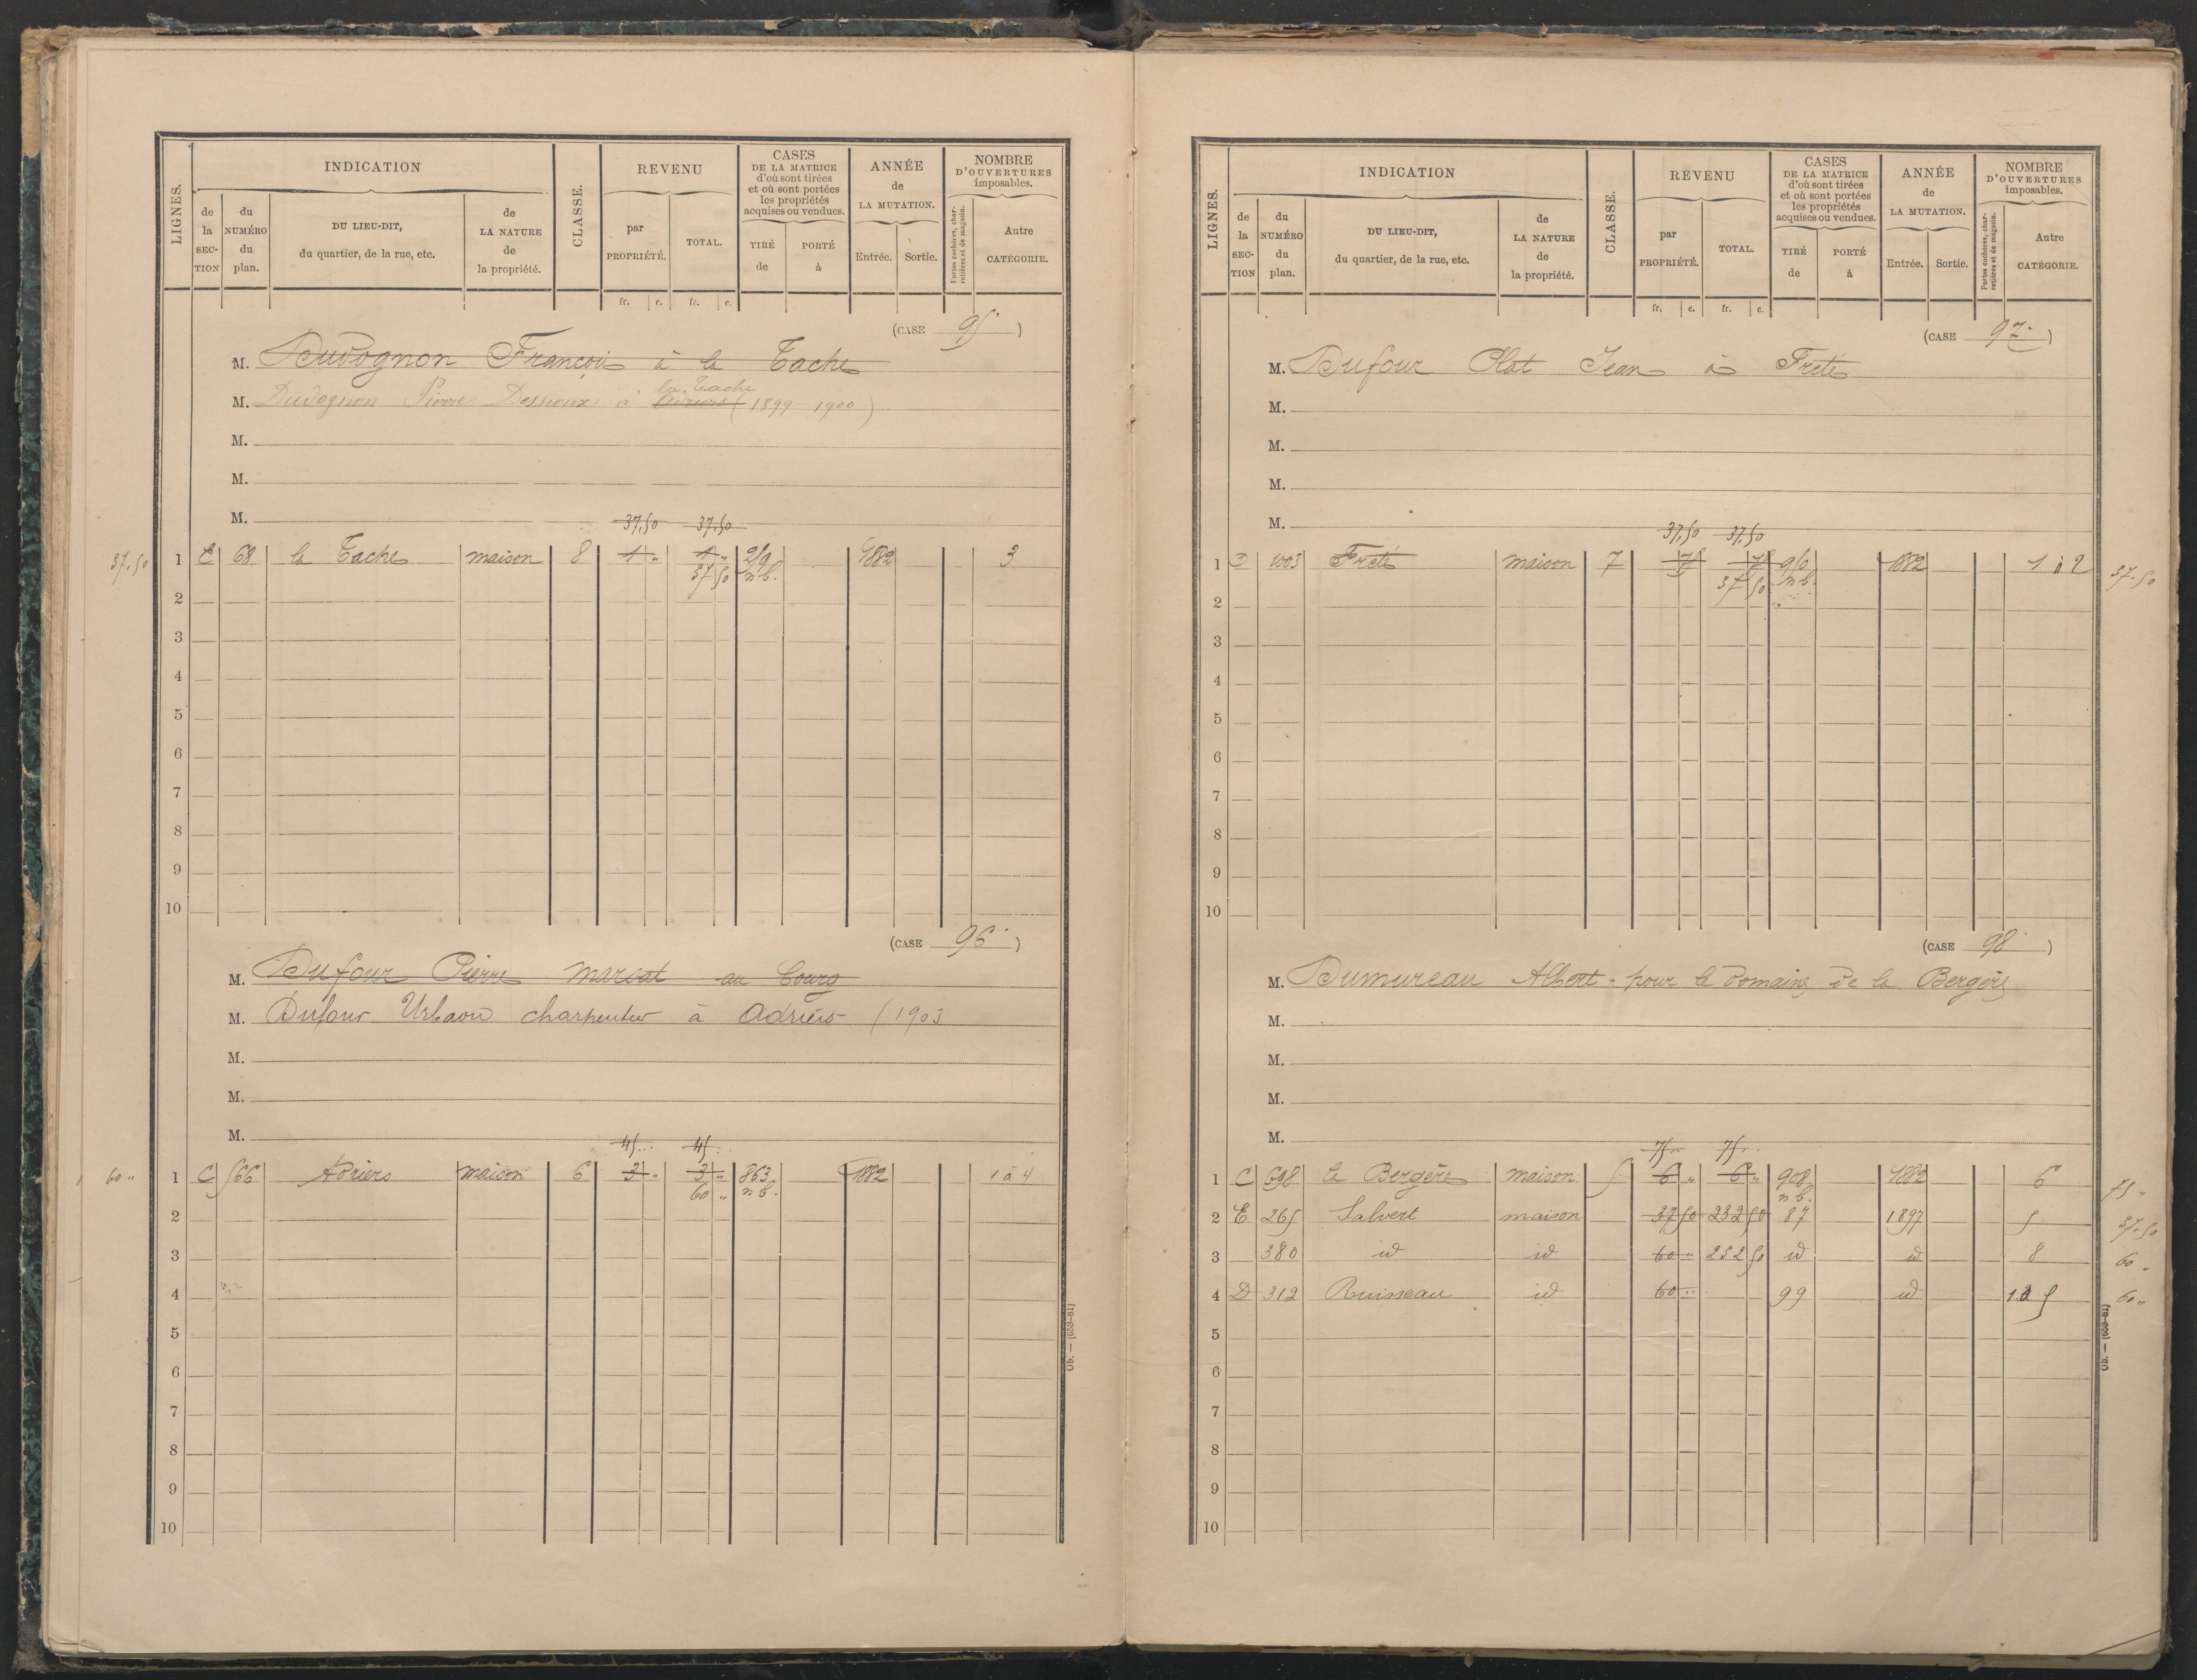 LIGNES. INDICATION CLASSE. REVENU CASES DE LA MATRICE d'où sont tirées et où sont portées les propriétés acquises ou vendues. ANNÉE de LA MUTATION. NOMBRE D'OUVERTURES imposables.
de la SEC-TION du NUMÉRO du plan. DU LIEU-DIT, du quartier, de la rue, etc. de LA NATURE de la propriété. par PROPRIÉTÉ. TOTAL. TIRÉ de PORTÉ à Entrée. Sortie. Portes cochères, char-retières et de magasin. Autre CATÉGORIE.
fr. c. fr. c.
(CASE 95)
M. Dudognon François à la Tache
la Tache
M. Dudognon Pierre à Adriers (1899 1900)
M.
M.
M.
37,50 37,50
37.50 1 E 68 la Tache maison 8 4 " 4 " 1882 3
37 50 n b.
2
3
4
5
6
7
8
9
10
(CASE 96)
M. Dufour Pierre marsat au bourg
M. Dufour Urbain charpentier à Adriers (1903
M.
M.
M.
45 .. 45 ..
60 " 1 C 566 Adriers maison 6 3 " 3 " 863 1882 1 à 4
60 " n b.
2
3
4
5
6
7
8
9
10
Ob. — (653-81)
LIGNES. INDICATION CLASSE. REVENU CASES DE LA MATRICE d'où sont tirées et où sont portées les propriétés acquises ou vendues. ANNÉE de LA MUTATION. NOMBRE D'OUVERTURES imposables.
de la SEC-TION du NUMÉRO du plan. DU LIEU-DIT, du quartier, de la rue, etc. de LA NATURE de la propriété. par PROPRIÉTÉ. TOTAL. TIRÉ de PORTÉ à Entrée. Sortie. Portes cochères, char-retières et de magasin. Autre CATÉGORIE.
fr. c. fr. c.
(CASE 97)
M. Dufour Clot Jean à Freté
M.
M.
M.
M.
37,50 37,50
1 D 1003 Freté maison 7 1882 1 à 2 37.50
37 50 n b.
2
3
4
5
6
7
8
9
10
(CASE 98)
M. Dumureau Albert - pour le Domaine de la Bergère
M.
M.
M.
M.
75 .. 75 ..
1 C 698 La Bergère maison 5 6 " 6 " 908 1882 6 75 "
n b.
2 E 265 Salvert maison 37 50 232 50 87 1897 5 37.50
3 380 id id 60 " 232 50 id id 8 60 "
4 D 312 Ruisseau id 60 " 99 id 60 "
5
6
7
8
9
10
Ob. — (653-81)